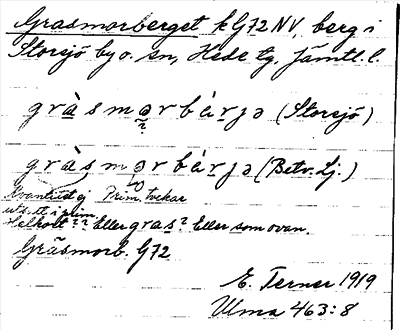 Gräsmorberget k G72 NV, berg i
Storsjö by o. sn, Hede tg, Jämtl. l.
gràsmərbárjə (Storsjö)
gràsmərbárjə (Betv. Lj.)
Kvantitet ej Prim. tvekar
uts. tl. i prim.
Helkort?? Eller gras? Eller som ovan.
Gräsmorb. G72
E. Terner 1919
Uma 463:8